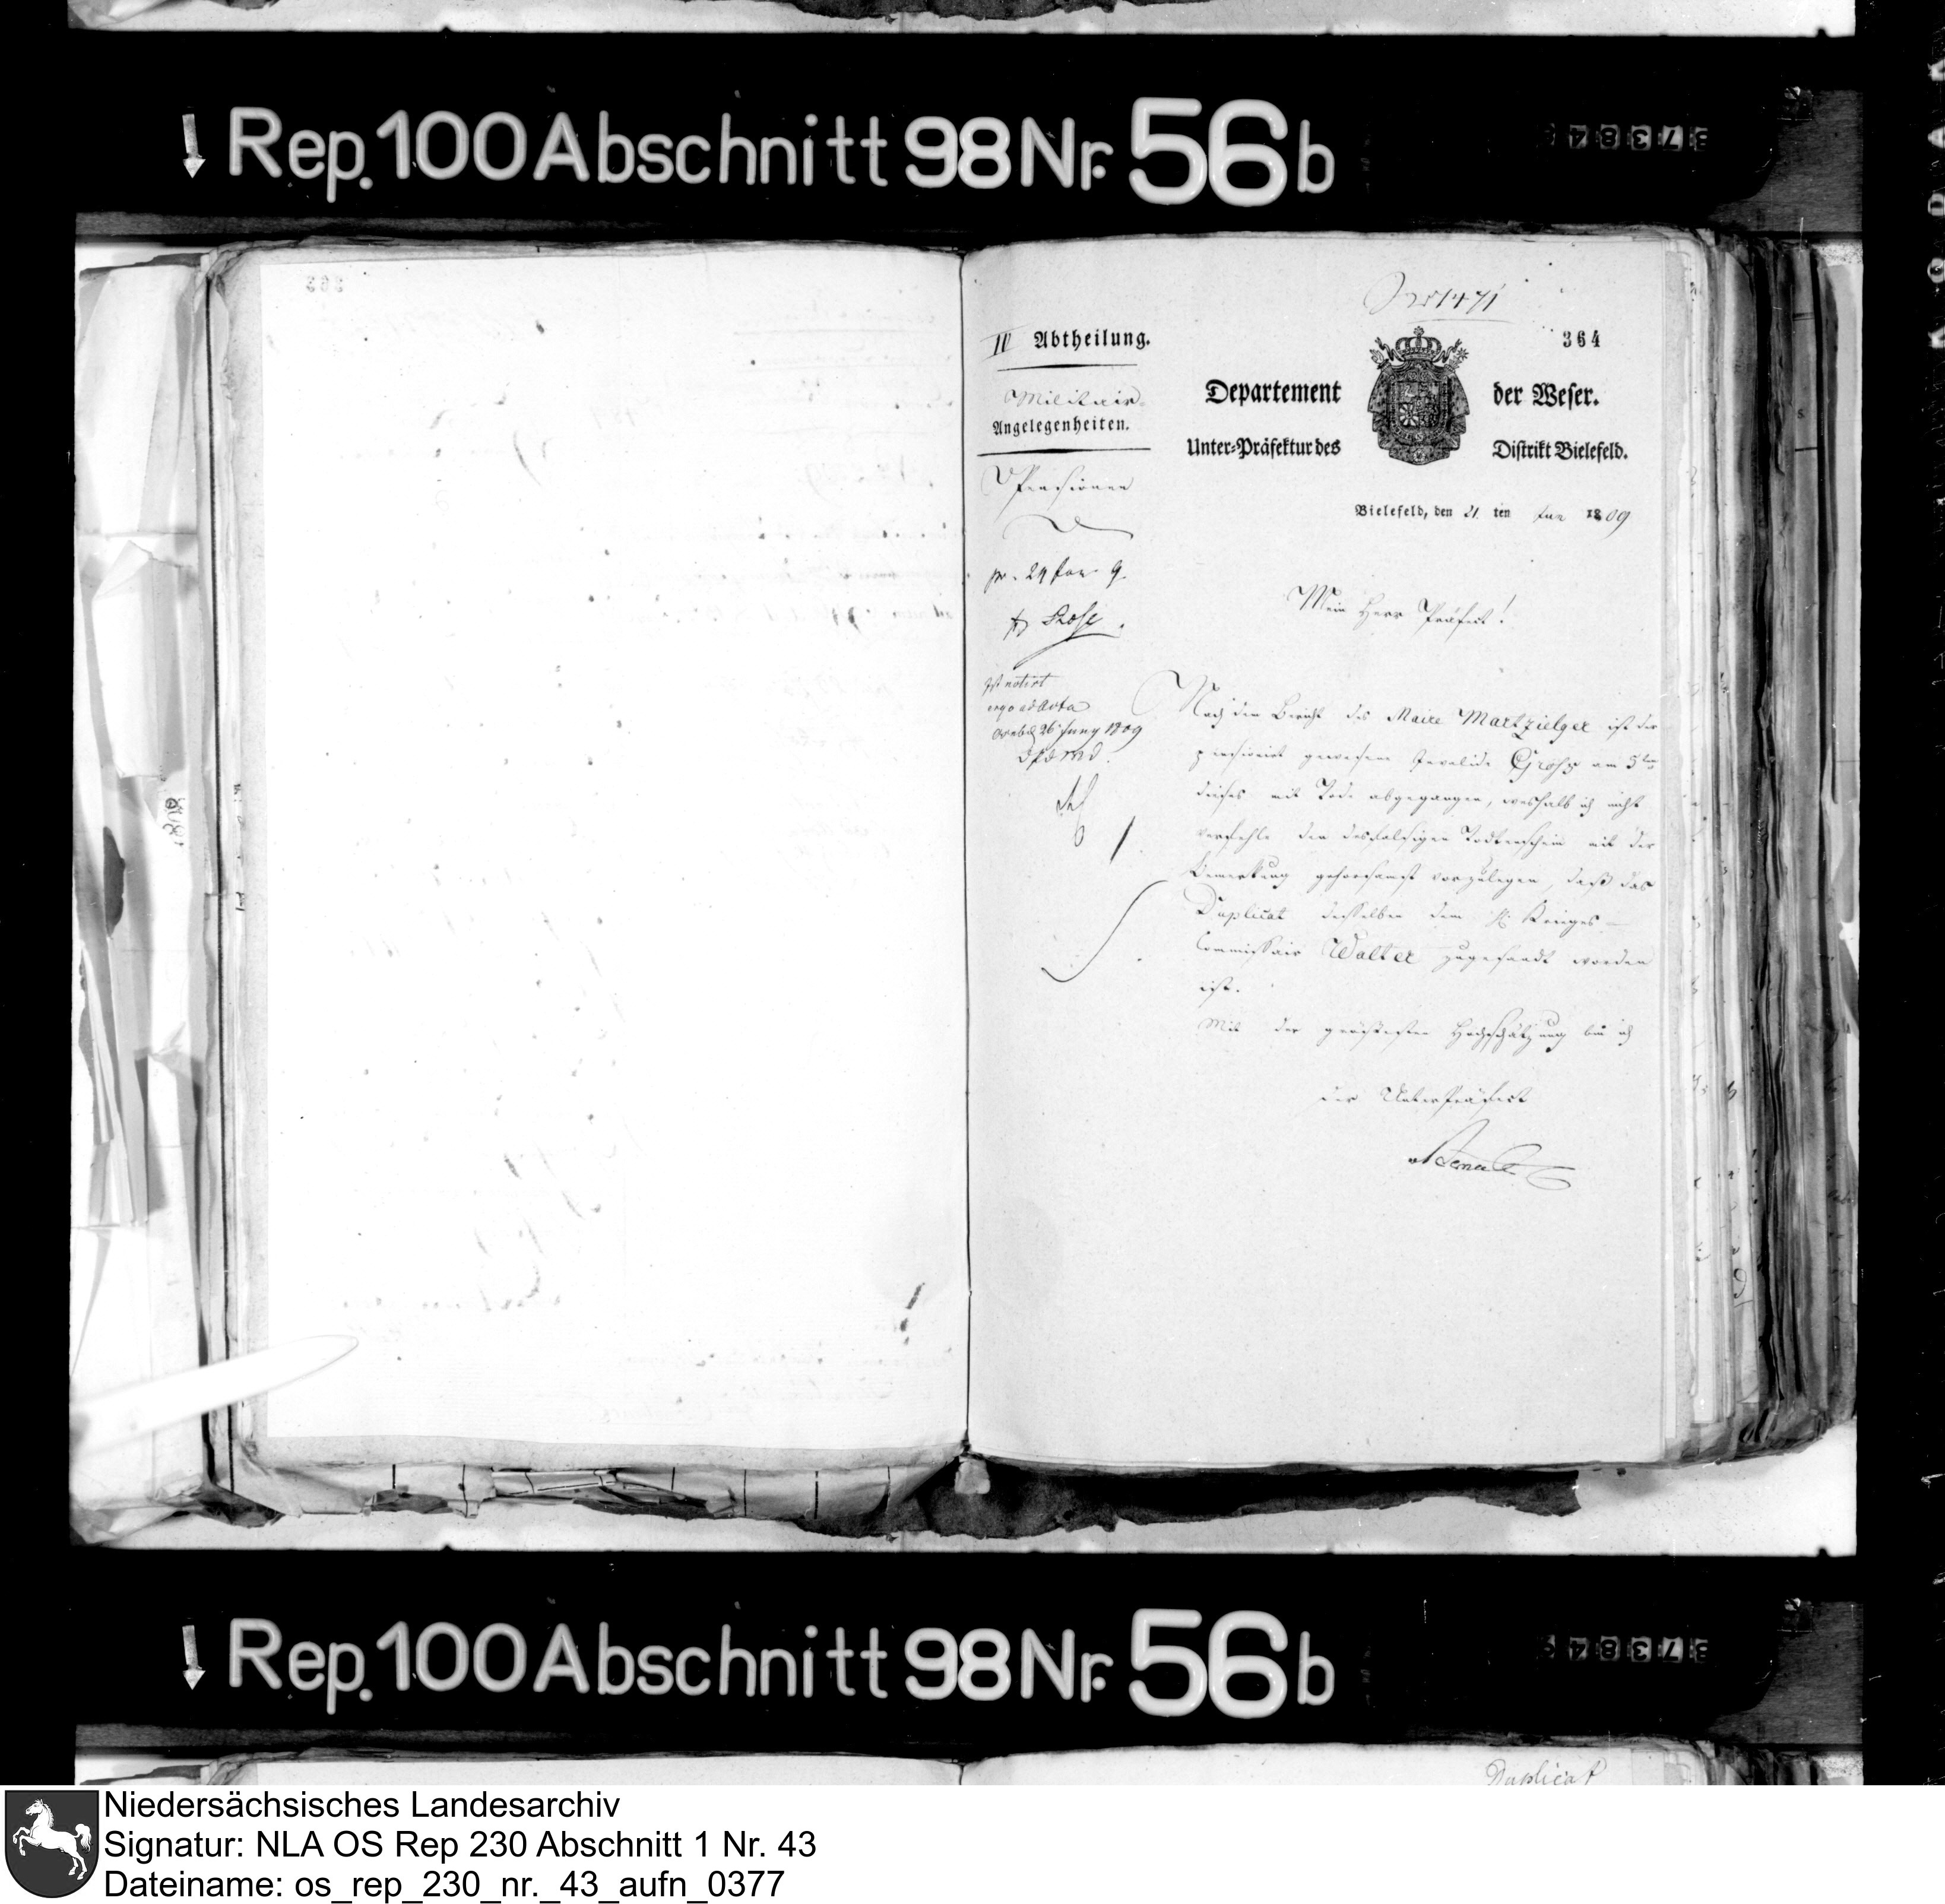 Rep. 100 Abschnitt 98 Nr. 56 b
364
IV Abtheilung.
Militair
Angelegenheiten.
Departement der Weser.
Unter-Präfektur des Distrikt Bielefeld.
Pensionen
Bielefeld, den 21 ten Jun 1809
pr. 24 Jun 9.
Mein Herr Präfect!
notirt
ergo ad Acta
26 Juny 1809
Nach dem Bericht des Maire Martzielger ist der
pensionirt gewesene Invalide Gross am 5ten
dieses mit Tode abgegangen, weshalb ich nicht
verfehle den desfalsigen Todtenschein mit der
Bemerkung gehorsamst vorzulegen, daß das
Duplicat desselben dem H. Krieges-
Commissair Walter zugesandt worden
ist.
Mit der Hochschätzung bin ich
der UnterPräfect
Rep. 100 Abschnitt 98 Nr. 56 b
Duplicat
Niedersächsisches Landesarchiv
Signatur: NLA OS Rep 230 Abschnitt 1 Nr. 43
Dateiname: os_rep_230_nr._43_aufn_0377